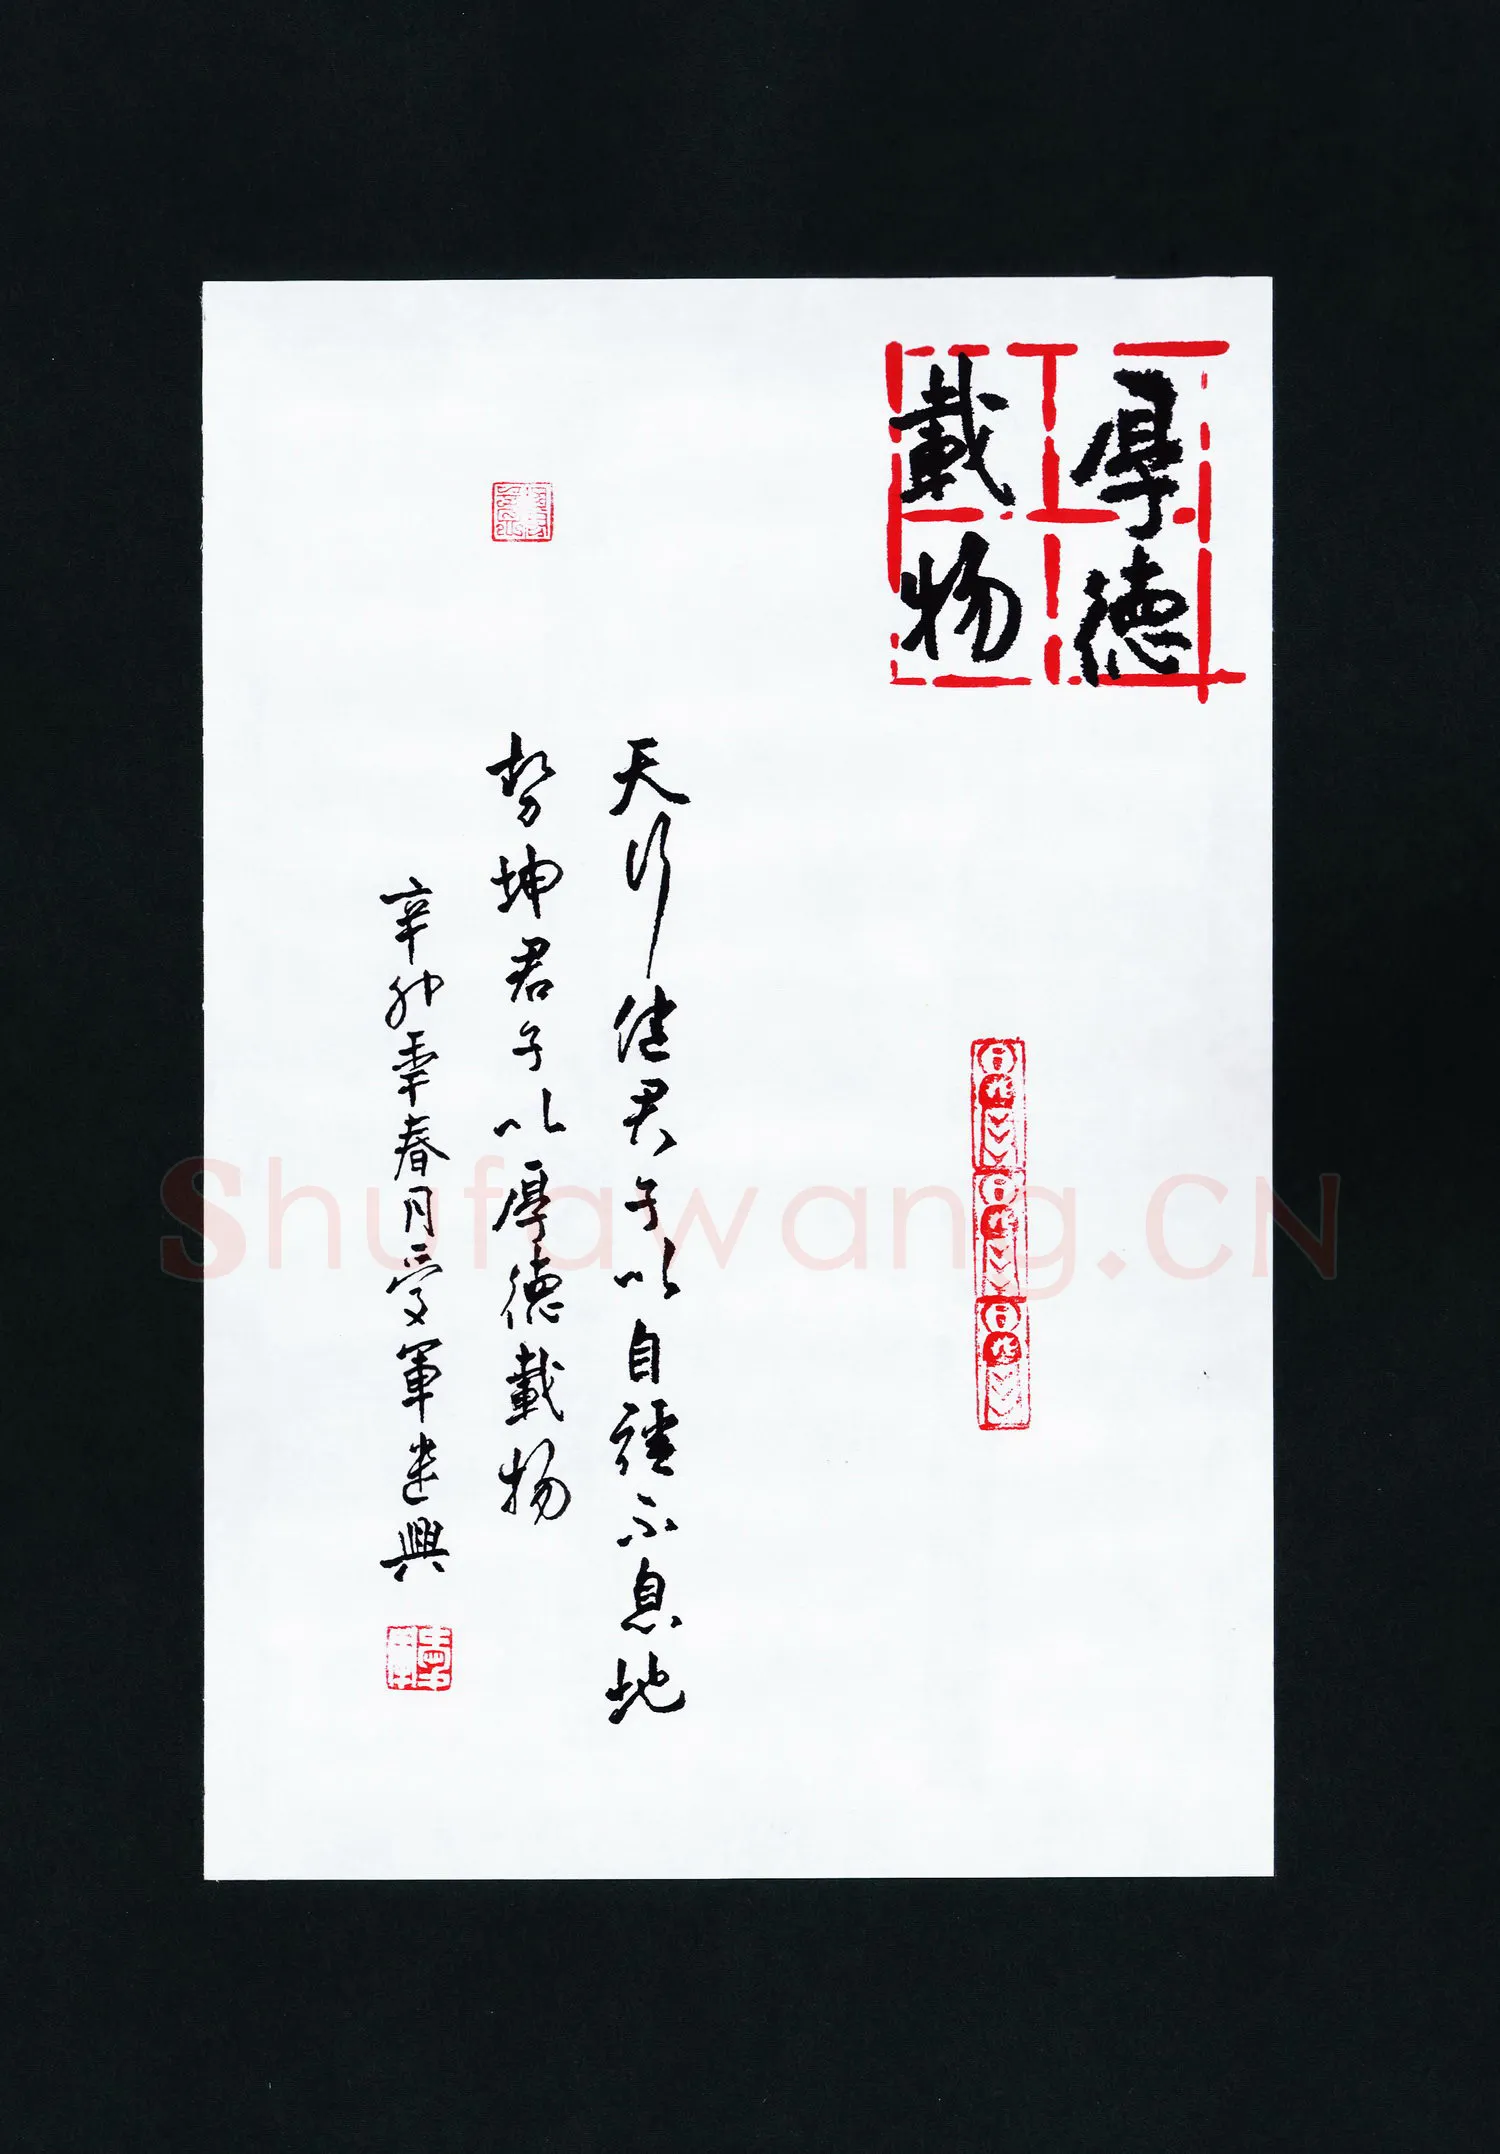 厚德
載物
天行健君子以自強不息地
势坤君子以厚德載物
辛卯年春月愛軍建興
Shufawang.CN